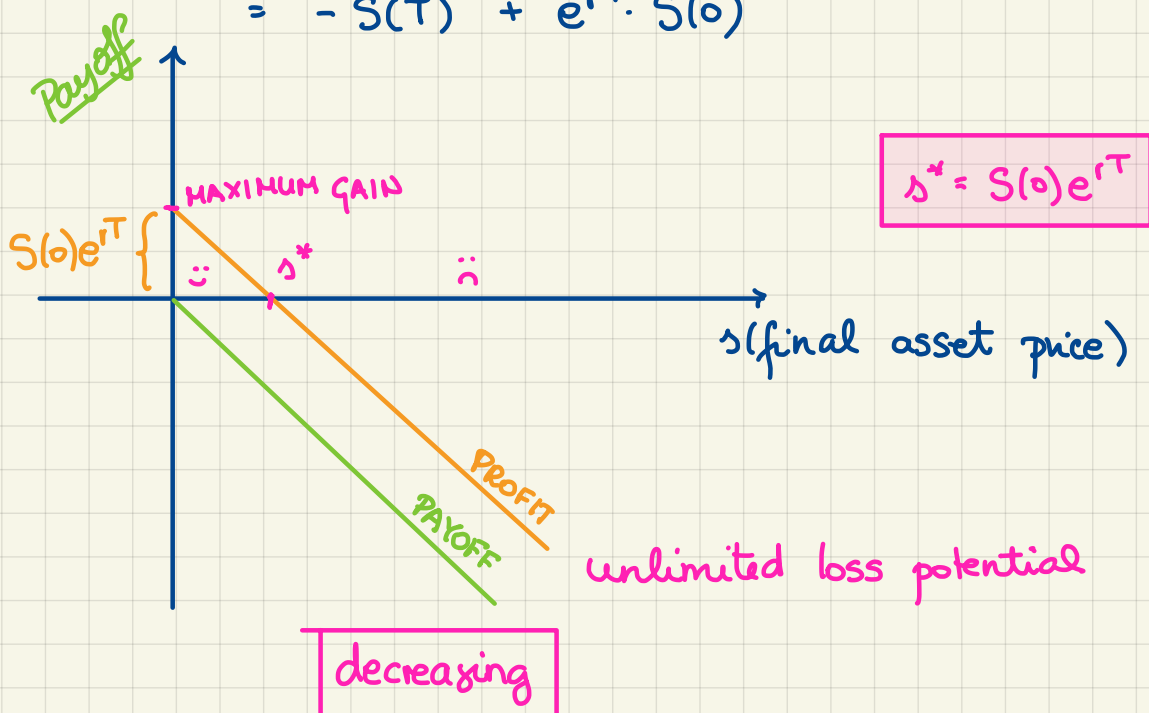 = - S(T) + e^{rT} · S(0)
Payoff
MAXIMUM GAIN
s* = S(0)e^{rT}
S(0)e^{rT} {
s*
s(final asset price)
PROFIT
PAYOFF
unlimited loss potential
decreasing